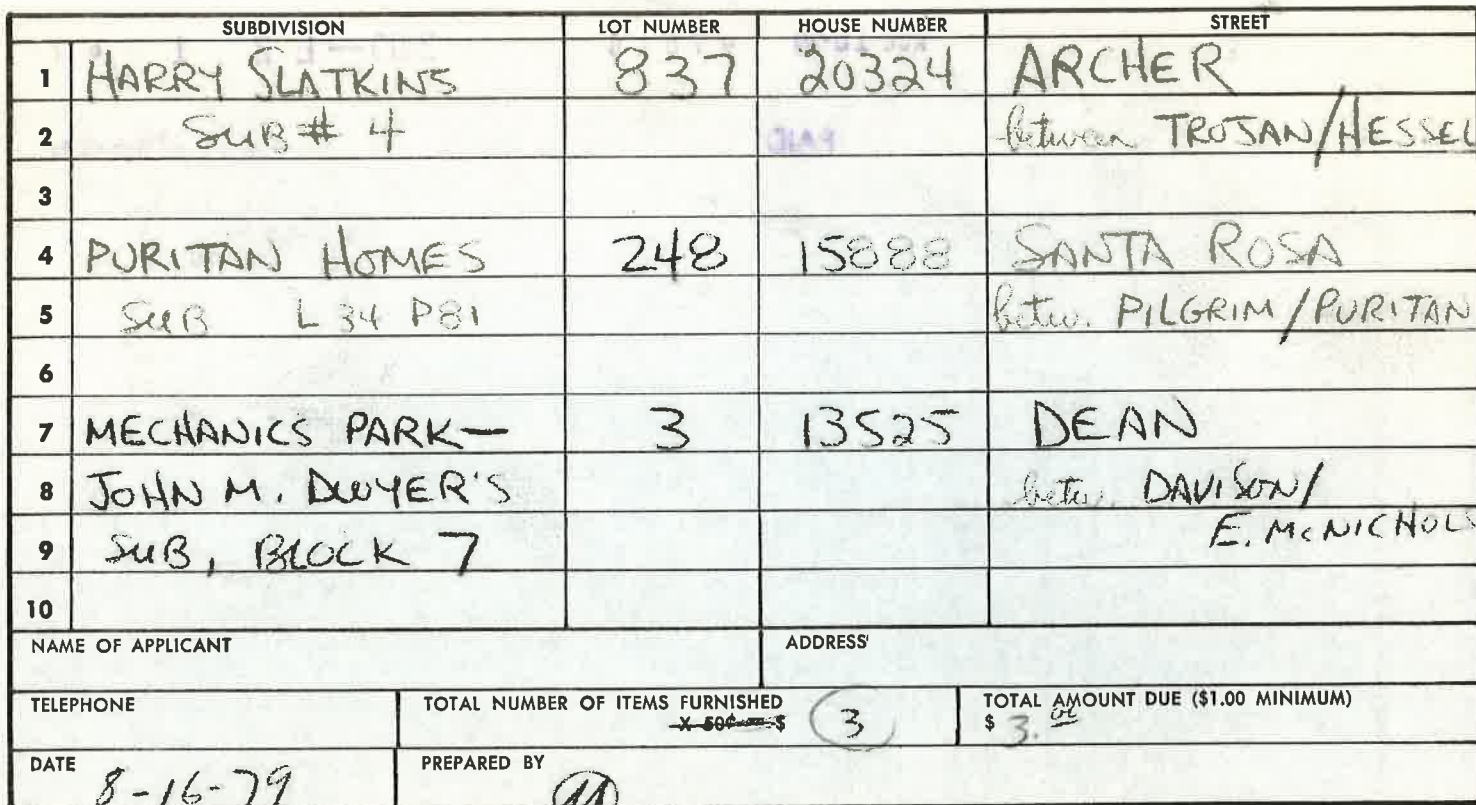 SUBDIVISION LOT NUMBER HOUSE NUMBER STREET
1 HARRY SLATKINS 837 20324 ARCHER
2 SUB # 4 between TROJAN/HESSEL
PAID
3
4 PURITAN HOMES 248 15888 SANTA ROSA
5 SUB L 34 P81 betw. PILGRIM/PURITAN
6
7 MECHANICS PARK— 3 13525 DEAN
8 JOHN M. DWYER'S betw. DAVISON/
9 SUB, BLOCK 7 E. MCNICHOLS
10
NAME OF APPLICANT ADDRESS
TELEPHONE TOTAL NUMBER OF ITEMS FURNISHED TOTAL AMOUNT DUE ($1.00 MINIMUM)
X 50¢ = $ 3 $ 3.00
DATE 8-16-79 PREPARED BY